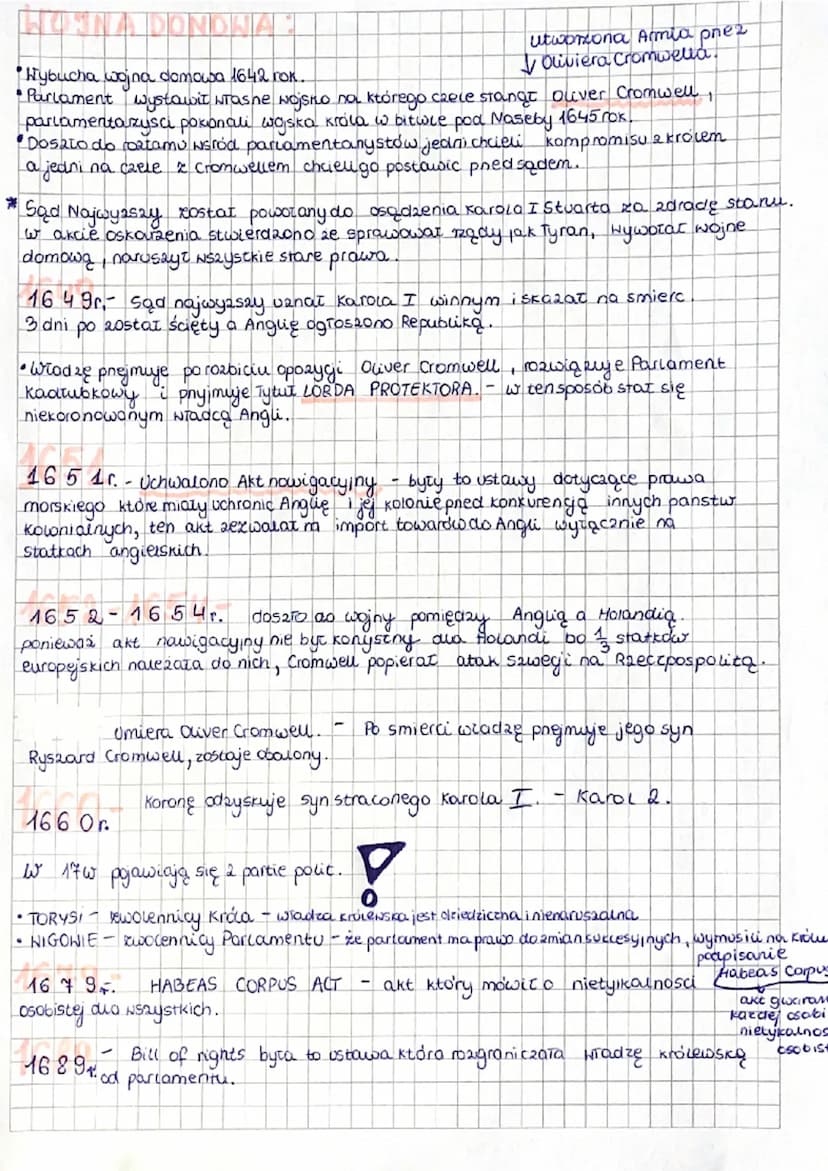 WOJNA DOMOWA:
utworzona Armia przez
↓ Oliviera Cromwella.
• Wybucha wojna domowa 1642 rok.
• Parlament wystawił własne wojsko na którego czele stanął Oliver Cromwell,
parlamentarzyści pokonali wojska króla w bitwie pod Naseby 1645 rok.
• Doszło do rozłamu wśród parlamentarystów jedni chcieli kompromisu z królem
a jedni na czele z Cromwellem chcieli go postawić przed sądem.
* Sąd Najwyższy został powołany do osądzenia Karola I Stuarta za zdradę stanu.
w akcie oskarżenia stwierdzono że sprawował rządy jak Tyran, wywołał wojne
domową, naruszył wszystkie stare prawa.
1649r.- Sąd najwyższy uznał Karola I winnym i skazał na smierc.
3 dni po został ścięty a Anglię ogłoszono Republiką.
• Władzę przejmuje po rozbiciu opozycji Oliver Cromwell, rozwiązuje Parlament
Kadłubkowy i przyjmuje Tytuł LORDA PROTEKTORA. - w ten sposób stał się
niekoronowanym władcą Angli.
1651r. - Uchwalono Akt nawigacyjny - były to ustawy dotyczące prawa
morskiego które miały uchronić Anglię i jej kolonie przed konkurencją innych panstw
kolonialnych, ten akt zezwalał na import towarów do Angli wyłącznie na
statkach angielskich.
1652-1654r. doszło do wojny pomiędzy Anglią a Holandią.
ponieważ akt nawigacyjny nie był korzystny dla Holandi bo 1/3 statków
europejskich należała do nich, Cromwell popierał atak szwecji na Rzeczpospolitą.
Umiera Oliver Cromwell. - Po smierci władzę przejmuje jego syn
Ryszard Cromwell, zostaje obalony.
1660r. Koronę odzyskuje syn straconego Karola I. - Karol 2.
W 17w pojawiają się 2 partie polit. !
• TORYSI - zwolennicy Króla - władza królewska jest dziedziczna i nienaruszalna
• WIGOWIE - zwolennicy Parlamentu - że parlament ma prawo do zmian sukcesyjnych, wymusili na królu
podpisanie
Habeas Corpus
1679r. HABEAS CORPUS ACT - akt który mówił o nietykalnosci
osobistej dla wszystkich.
akt gwaran
każdej osobi
nietykalnos
osobist
1689r. - Bill of rights była to ustawa która rozgraniczała władzę królewską
od parlamentu.